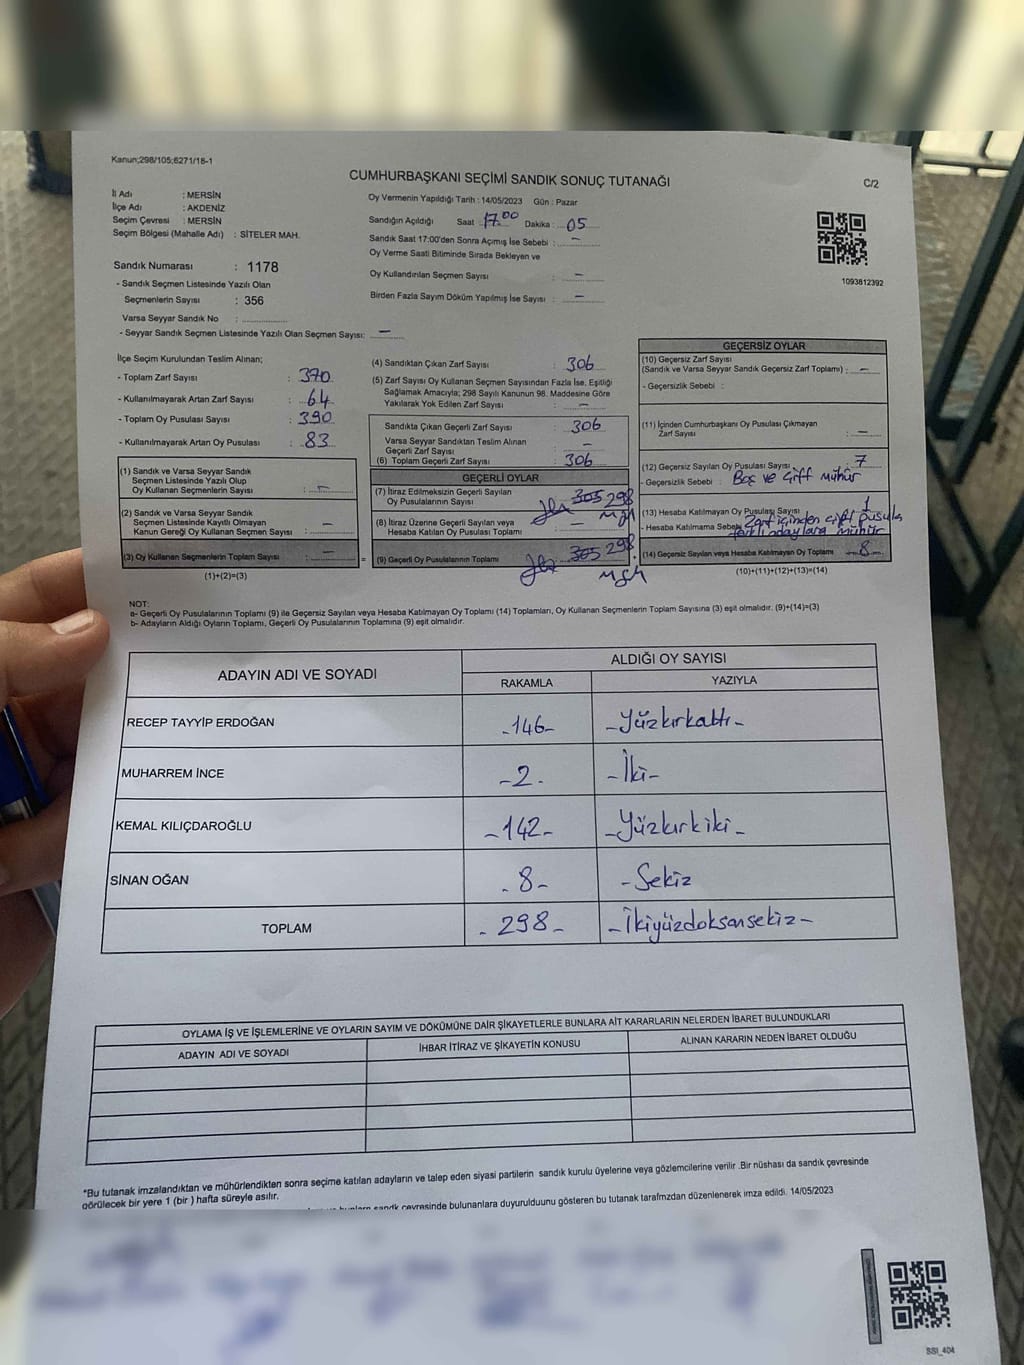 Kanun;298/105;6271/18-1
CUMHURBAŞKANI SEÇİMİ SANDIK SONUÇ TUTANAĞI
C/2
İl Adı : MERSİN
İlçe Adı : AKDENİZ
Seçim Çevresi : MERSİN
Seçim Bölgesi (Mahalle Adı) : SİTELER MAH.
Oy Vermenin Yapıldığı Tarih : 14/05/2023 Gün : Pazar
Sandığın Açıldığı Saat : 17.00 Dakika : 05
Sandık Saat 17:00'den Sonra Açımış İse Sebebi : –
Oy Verme Saati Bitiminde Sırada Bekleyen ve
Oy Kullandırılan Seçmen Sayısı : –
Birden Fazla Sayım Döküm Yapılmış İse Sayısı : –
1093812392
Sandık Numarası : 1178
- Sandık Seçmen Listesinde Yazılı Olan
Seçmenlerin Sayısı : 356
Varsa Seyyar Sandık No :
- Seyyar Sandık Seçmen Listesinde Yazılı Olan Seçmen Sayısı: –
İlçe Seçim Kurulundan Teslim Alınan;
- Toplam Zarf Sayısı : 370
- Kullanılmayarak Artan Zarf Sayısı : 64
- Toplam Oy Pusulası Sayısı : 390
- Kullanılmayarak Artan Oy Pusulası : 83
(1) Sandık ve Varsa Seyyar Sandık
Seçmen Listesinde Yazılı Olup
Oy Kullanan Seçmenlerin Sayısı : –
(2) Sandık ve Varsa Seyyar Sandık
Seçmen Listesinde Kayıtlı Olmayan
Kanun Gereği Oy Kullanan Seçmen Sayısı : –
(3) Oy Kullanan Seçmenlerin Toplam Sayısı : –
(1)+(2)=(3)
(4) Sandıktan Çıkan Zarf Sayısı : 306
(5) Zarf Sayısı Oy Kullanan Seçmen Sayısından Fazla İse, Eşitliği
Sağlamak Amacıyla; 298 Sayılı Kanunun 98. Maddesine Göre
Yakılarak Yok Edilen Zarf Sayısı : –
Sandıkta Çıkan Geçerli Zarf Sayısı : 306
Varsa Seyyar Sandıktan Teslim Alınan
Geçerli Zarf Sayısı : –
(6) Toplam Geçerli Zarf Sayısı : 306
GEÇERLİ OYLAR
(7) İtiraz Edilmeksizin Geçerli Sayılan
Oy Pusulalarının Sayısı : 305 298
(8) İtiraz Üzerine Geçerli Sayılan veya
Hesaba Katılan Oy Pusulası Toplamı : –
= (9) Geçerli Oy Pusulalarının Toplamı : 305 298 +
GEÇERSİZ OYLAR
(10) Geçersiz Zarf Sayısı
(Sandık ve Varsa Seyyar Sandık Geçersiz Zarf Toplamı) : –
- Geçersizlik Sebebi :
(11) İçinden Cumhurbaşkanı Oy Pusulası Çıkmayan
Zarf Sayısı : –
(12) Geçersiz Sayılan Oy Pusulası Sayısı : 7
- Geçersizlik Sebebi : Boş ve Çift Mühür
(13) Hesaba Katılmayan Oy Pusulası Sayısı : 1
- Hesaba Katılmama Sebebi : Zarf içinden çift pusula
farklı adaylara mühür
(14) Geçersiz Sayılan veya Hesaba Katılmayan Oy Toplamı : 8
(10)+(11)+(12)+(13)=(14)
NOT:
a- Geçerli Oy Pusulalarının Toplamı (9) ile Geçersiz Sayılan veya Hesaba Katılmayan Oy Toplamı (14) Toplamları, Oy Kullanan Seçmenlerin Toplam Sayısına (3) eşit olmalıdır. (9)+(14)=(3)
b- Adayların Aldığı Oyların Toplamı, Geçerli Oy Pusulalarının Toplamına (9) eşit olmalıdır.
ADAYIN ADI VE SOYADI
ALDIĞI OY SAYISI
RAKAMLA YAZIYLA
RECEP TAYYİP ERDOĞAN -146- -Yüzkırkaltı-
MUHARREM İNCE -2- -İki-
KEMAL KILIÇDAROĞLU -142- -Yüzkırkiki-
SİNAN OĞAN -8- -Sekiz
TOPLAM -298- -İkiyüzdoksansekiz-
OYLAMA İŞ VE İŞLEMLERİNE VE OYLARIN SAYIM VE DÖKÜMÜNE DAİR ŞİKAYETLERLE BUNLARA AİT KARARLARIN NELERDEN İBARET BULUNDUKLARI
ADAYIN ADI VE SOYADI İHBAR İTİRAZ VE ŞİKAYETİN KONUSU ALINAN KARARIN NEDEN İBARET OLDUĞU
*Bu tutanak imzalandıktan ve mühürlendikten sonra seçime katılan adayların ve talep eden siyasi partilerin sandık kurulu üyelerine veya gözlemcilerine verilir .Bir nüshası da sandık çevresinde
görülecek bir yere 1 (bir ) hafta süreyle asılır.
sandık çevresinde bulunanlara duyurulduunu gösteren bu tutanak tarafmzdan düzenlenerek imza edildi. 14/05/2023
SSI_404